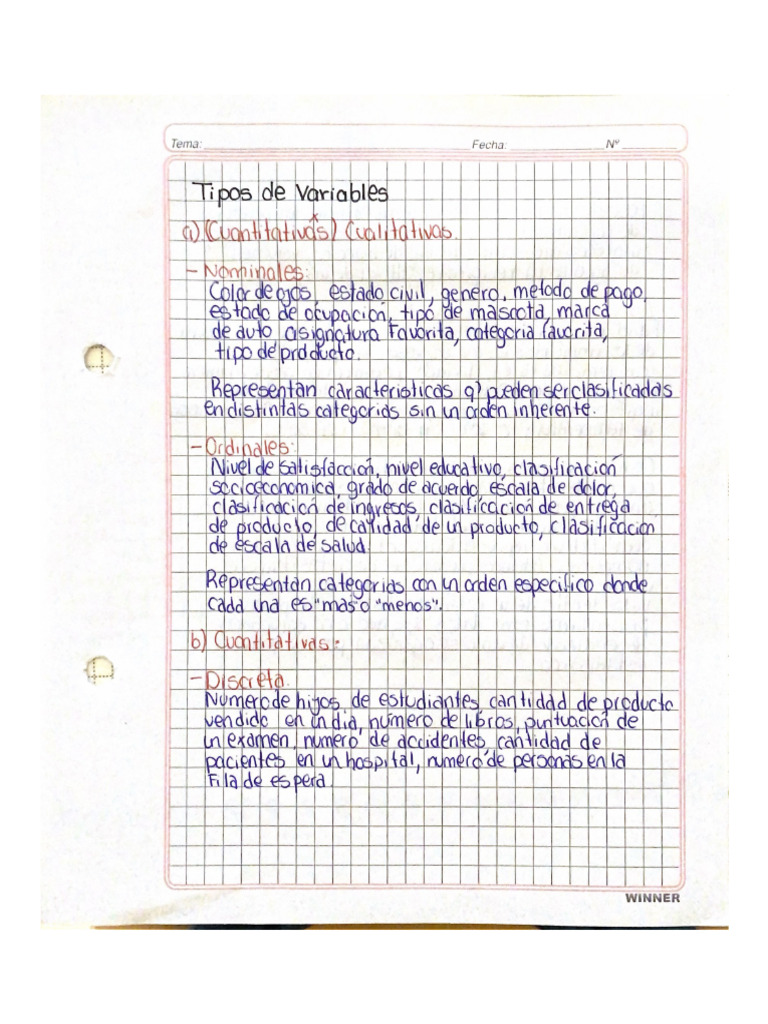 Tema: Fecha: Nº
Tipos de Variables
a) (Cuantitativas) x Cualitativas.
- Nominales:
Color de ojos, estado civil, genero, metodo de pago,
estado de ocupación, tipo de mascota, marca
de auto asignatura Favorita, categoria favorita,
tipo de producto.
Representan caracteristicas q) pueden ser clasificadas
en distintas categorias sin un orden inherente.
- Ordinales:
Nivel de satisfacción, nivel educativo, clasificación
socioeconomica, grado de acuerdo, escala de dolor,
clasificación de ingresos, clasificación de entrega
de producto, de calidad de un producto, clasificación
de escala de salud.
Representan categorias con un orden especifico donde
cada una es "mas o "menos".
b) Cuantitativas:
- Discreta.
Numero de hijos, de estudiantes, cantidad de producto
vendido en un dia, número de libros, puntuación de
un examen, numero de accidentes, cantidad de
pacientes en un hospital, numero de personas en la
Fila de espera.
WINNER